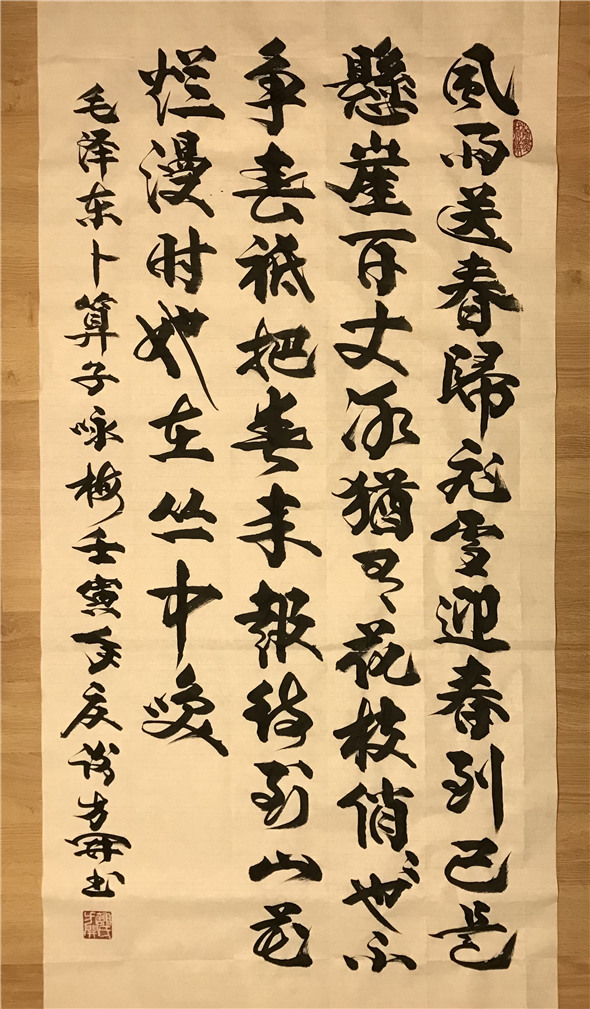 風雨送春歸飛雪迎春到已是
懸崖百丈冰猶有花枝俏〻也不
争春祗把春来報待到山花
烂漫时她在丛中咲
毛泽东卜算子咏梅壬寅年夏方书